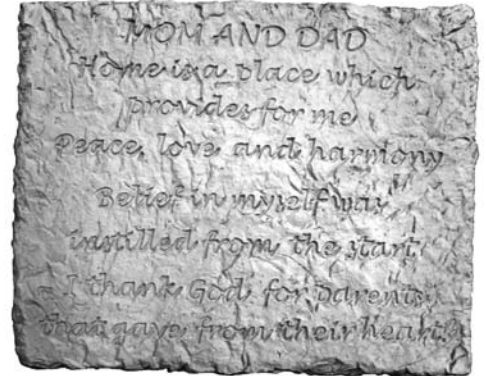 MOM AND DAD
Home is a place which
provides for me
Peace, love and harmony
Belief in myself was
instilled from the start
I thank God for parents
that gave from their heart.